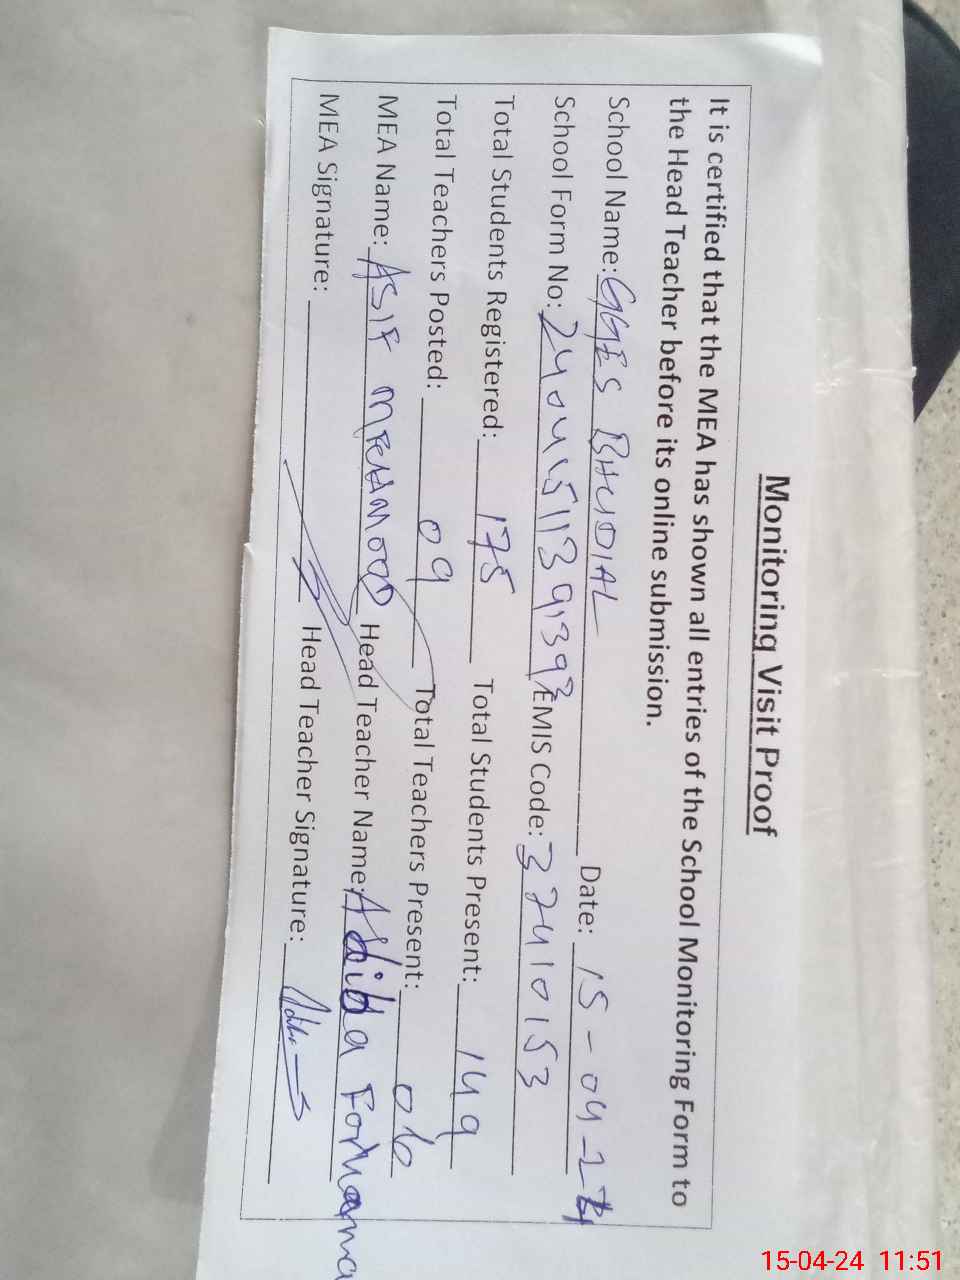 Monitoring Visit Proof
It is certified that the MEA has shown all entries of the School Monitoring Form to
the Head Teacher before its online submission.
School Name: GGES BHUDIAL Date: 15-04-24
School Form No: EMIS Code: 37410153
Total Students Registered: 175 Total Students Present: 149
Total Teachers Posted: 09 Total Teachers Present: 06
MEA Name: ASIF MEHMOOD Head Teacher Name:
MEA Signature: Head Teacher Signature:
15-04-24 11:51